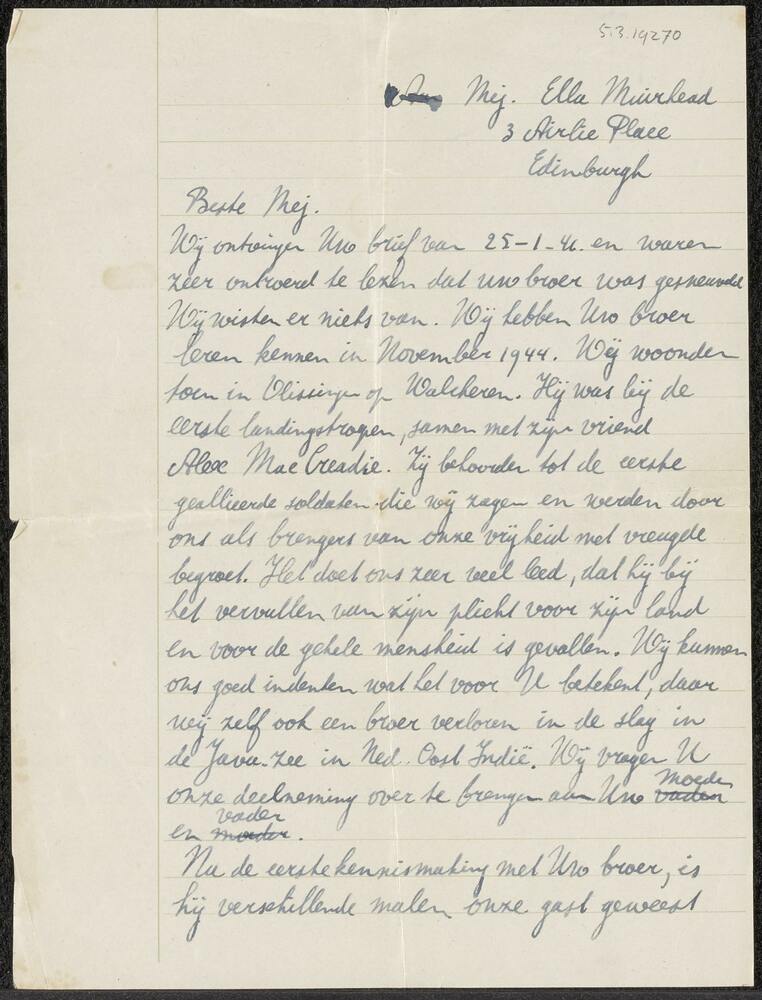 5.3.19270
Mej. Ella Muirhead
3 Airlie Place
Edinburgh
Beste Mej.
Wij ontvingen Uw brief van 25-1-46. en waren
zeer ontroerd te lezen dat uw broer was gesneuveld
Wij wisten er niets van. Wij hebben Uw broer
leren kennen in November 1944. Wij woonden
toen in Vlissingen op Walcheren. Hij was bij de
eerste landingstropen, samen met zijn vriend
Alex Mac Creadie. Zij behoorden tot de eerste
geallieerde soldaten die wij zagen en werden door
ons als brengers van onze vrijheid met vreugde
begroet. Het doet ons zeer veel leed, dat hij bij
het vervullen van zijn plicht voor zijn land
en voor de gehele mensheid is gevallen. Wij kunnen
ons goed indenken wat het voor U betekent, daar
wij zelf ook een broer verloren in de slag in
de Java-zee in Ned. Oost Indië. Wij vragen U
onze deelneming over te brengen aan Uw vader moeder
en moeder vader.
Na de eerste kennismaking met Uw broer, is
hij verschillende malen onze gast geweest